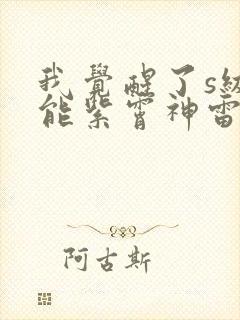 我覺醒了s級
能紫霄神雷
阿古斯